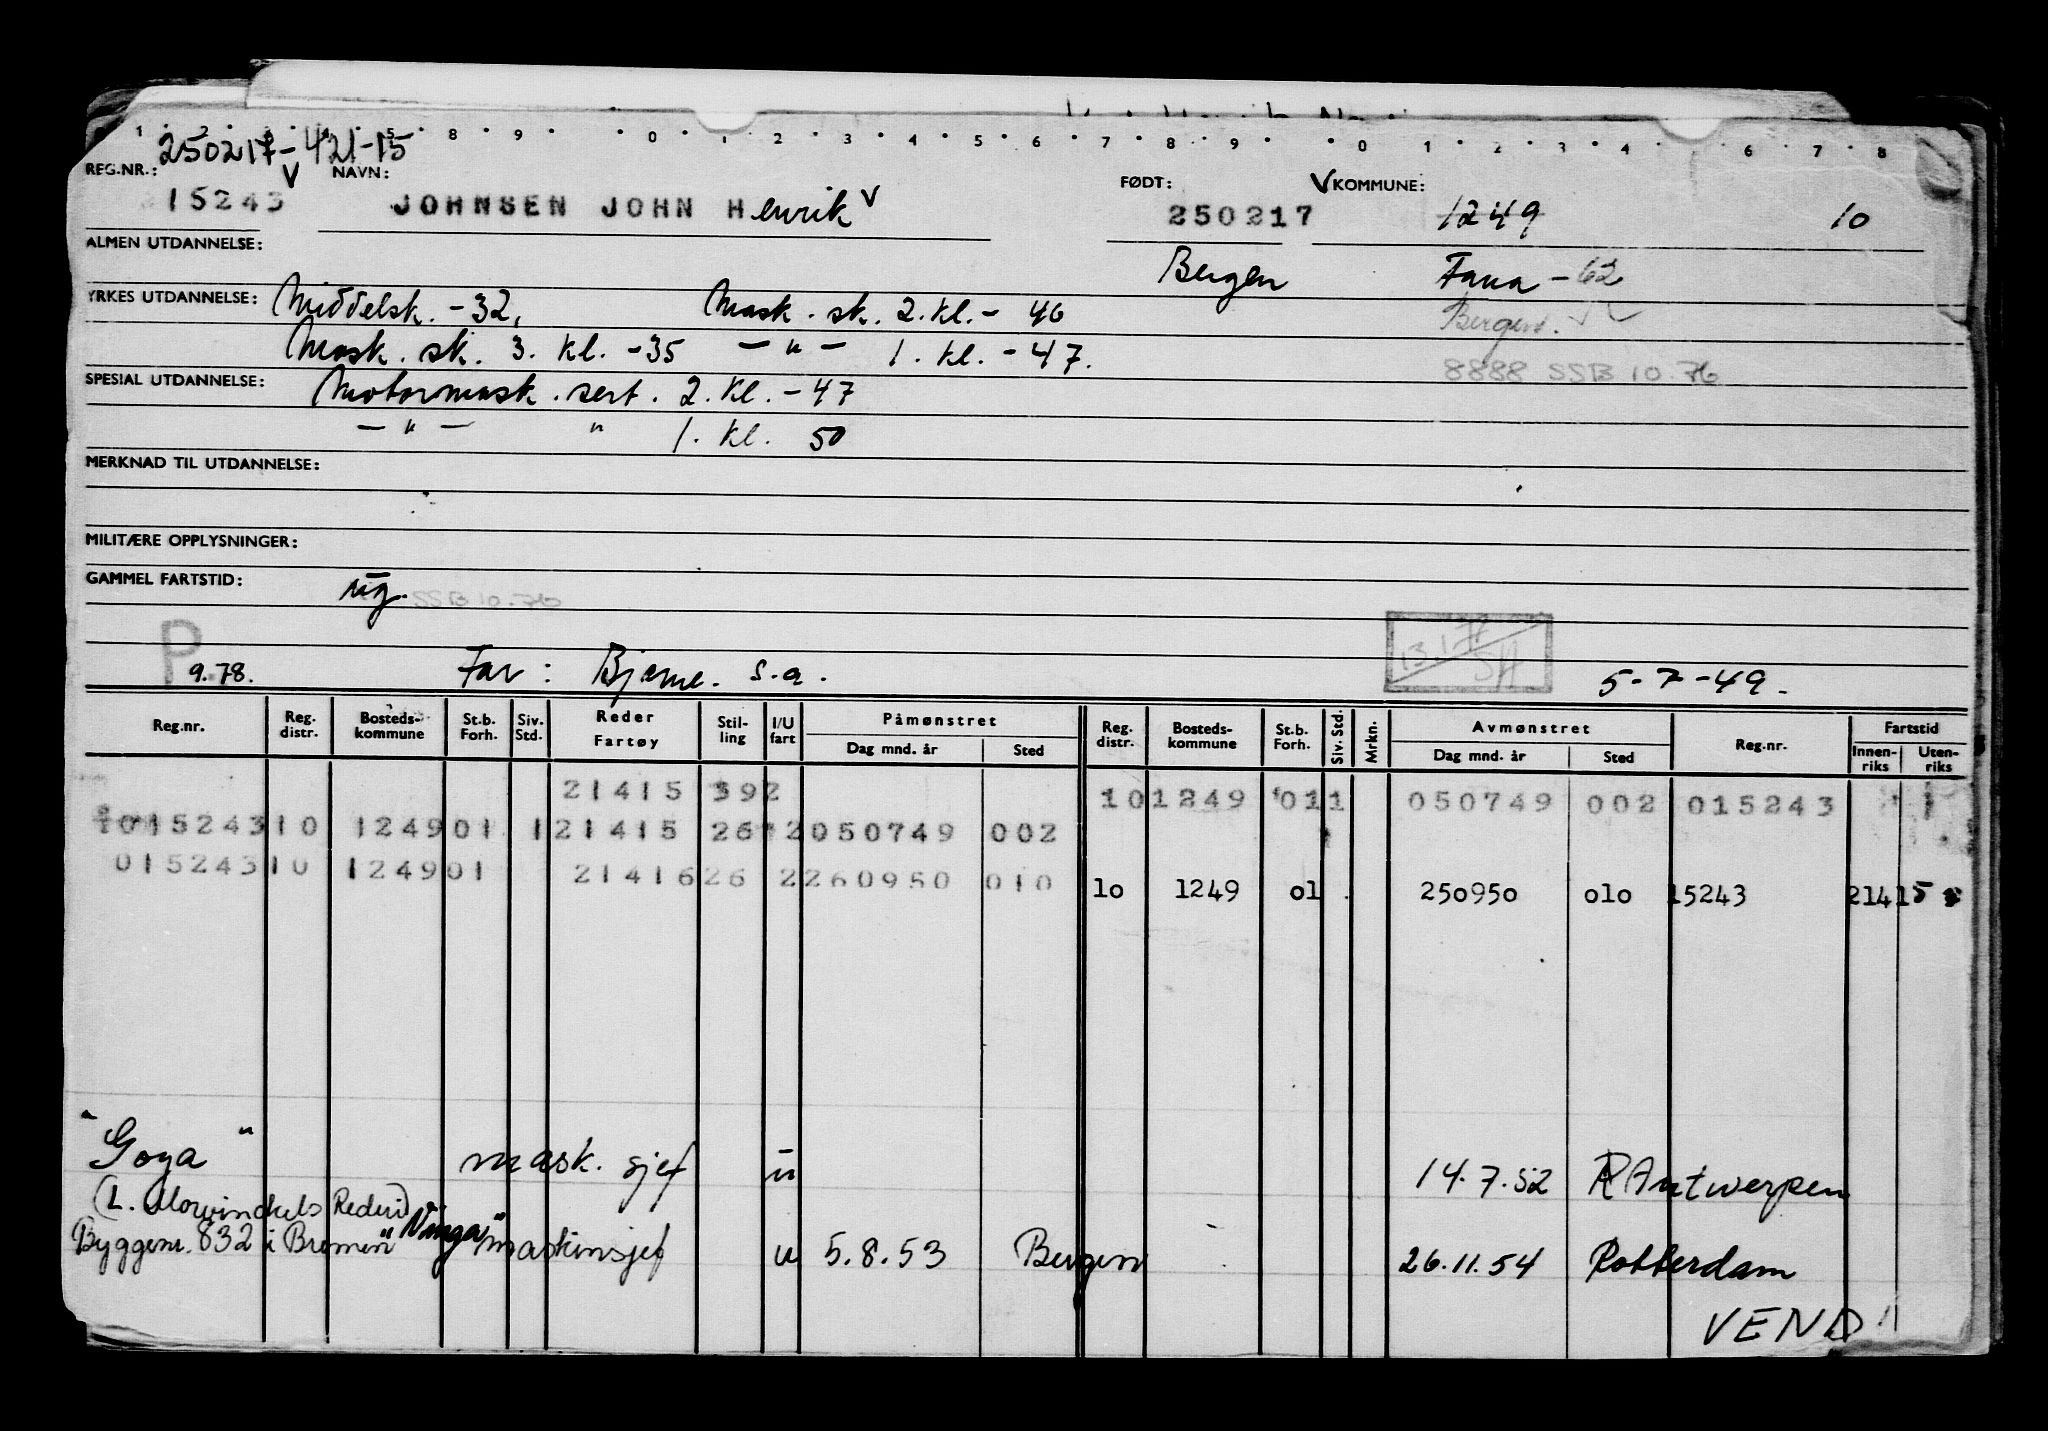 1 2 3 4 5 8 9 0 1 2 3 4 5 6 7 8 9 0 1 2 3 4 6 7 8
250217-421-15
REG.NR.: NAVN: FØDT: KOMMUNE:
15243 JOHNSEN JOHN Henrik 250217 1249 10
ALMEN UTDANNELSE:
Bergen Fana - 62
YRKES UTDANNELSE: Middelsk. -32, Mask. sk. 2. kl. - 46
Bergen.
Mask. sk. 3. kl. -35 — " — 1. kl. - 47.
8888 SSB 10.76
SPESIAL UTDANNELSE: Motormask. sert. 2. kl. - 47
— " — " 1. kl. 50
MERKNAD TIL UTDANNELSE:
MILITÆRE OPPLYSNINGER:
GAMMEL FARTSTID:
SSB 10.76
13.1.78
P 9.78. Far: Bjarne. s.a. 5-7-49.
Reg.nr. Reg. distr. Bosteds-kommune St.b. Forh. Siv. Std. Reder Fartøy Stil-ling I/U fart Påmønstret Dag mnd. år Sted Reg. distr. Bosteds-kommune St.b. Forh. Siv. Std. Mrkn. Avmønstret Dag mnd. år Sted Reg.nr. Fartstid Innen-riks Uten-riks
21415 392 10 1249 011 050749 002 015243
015243 10 1249 01 1 21415 26 2 050749 002
015243 10 1249 01 21416 26 2 260950 010
10 1249 01 250950 010 15243 21415
"Goya" mask. sjef u 14.7.52 Antwerpen
(L. Mowinckels Rederi)
Byggenr. 832 i Bremen "Ninga" maskinsjef u 5.8.53 Bergen 26.11.54 Rotterdam
VEND!